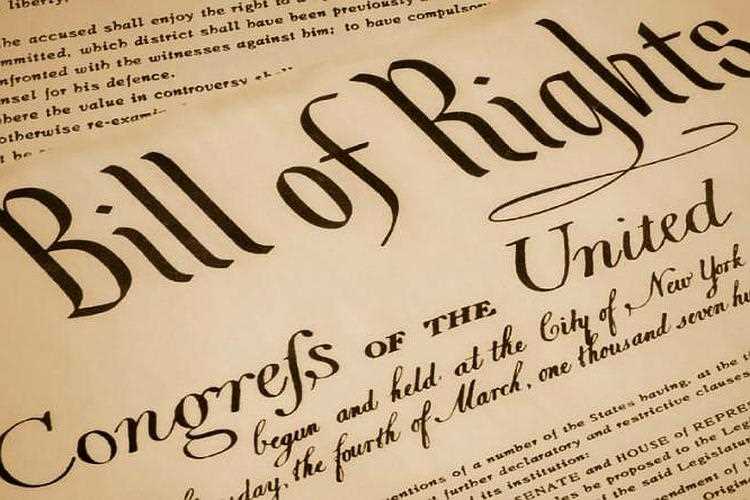 liberty,
he accused shall enjoy the right to
mmitted, which district shall have been previously
nfronted with the witnesses against him; to have compulsor
nsel for his defence.
here the value in controversy
otherwise re-exami
t be
Bill of Rights
Congreſs OF THE United
begun and held at the City of New York
day, the fourth of March, one thousand seven hu
ventions of a number of the States having, at the
further declaratory and restrictive clauses
its institution:
SENATE and HOUSE of REPRE
be proposed to the Leg
the said Legislatur
ndment of
original